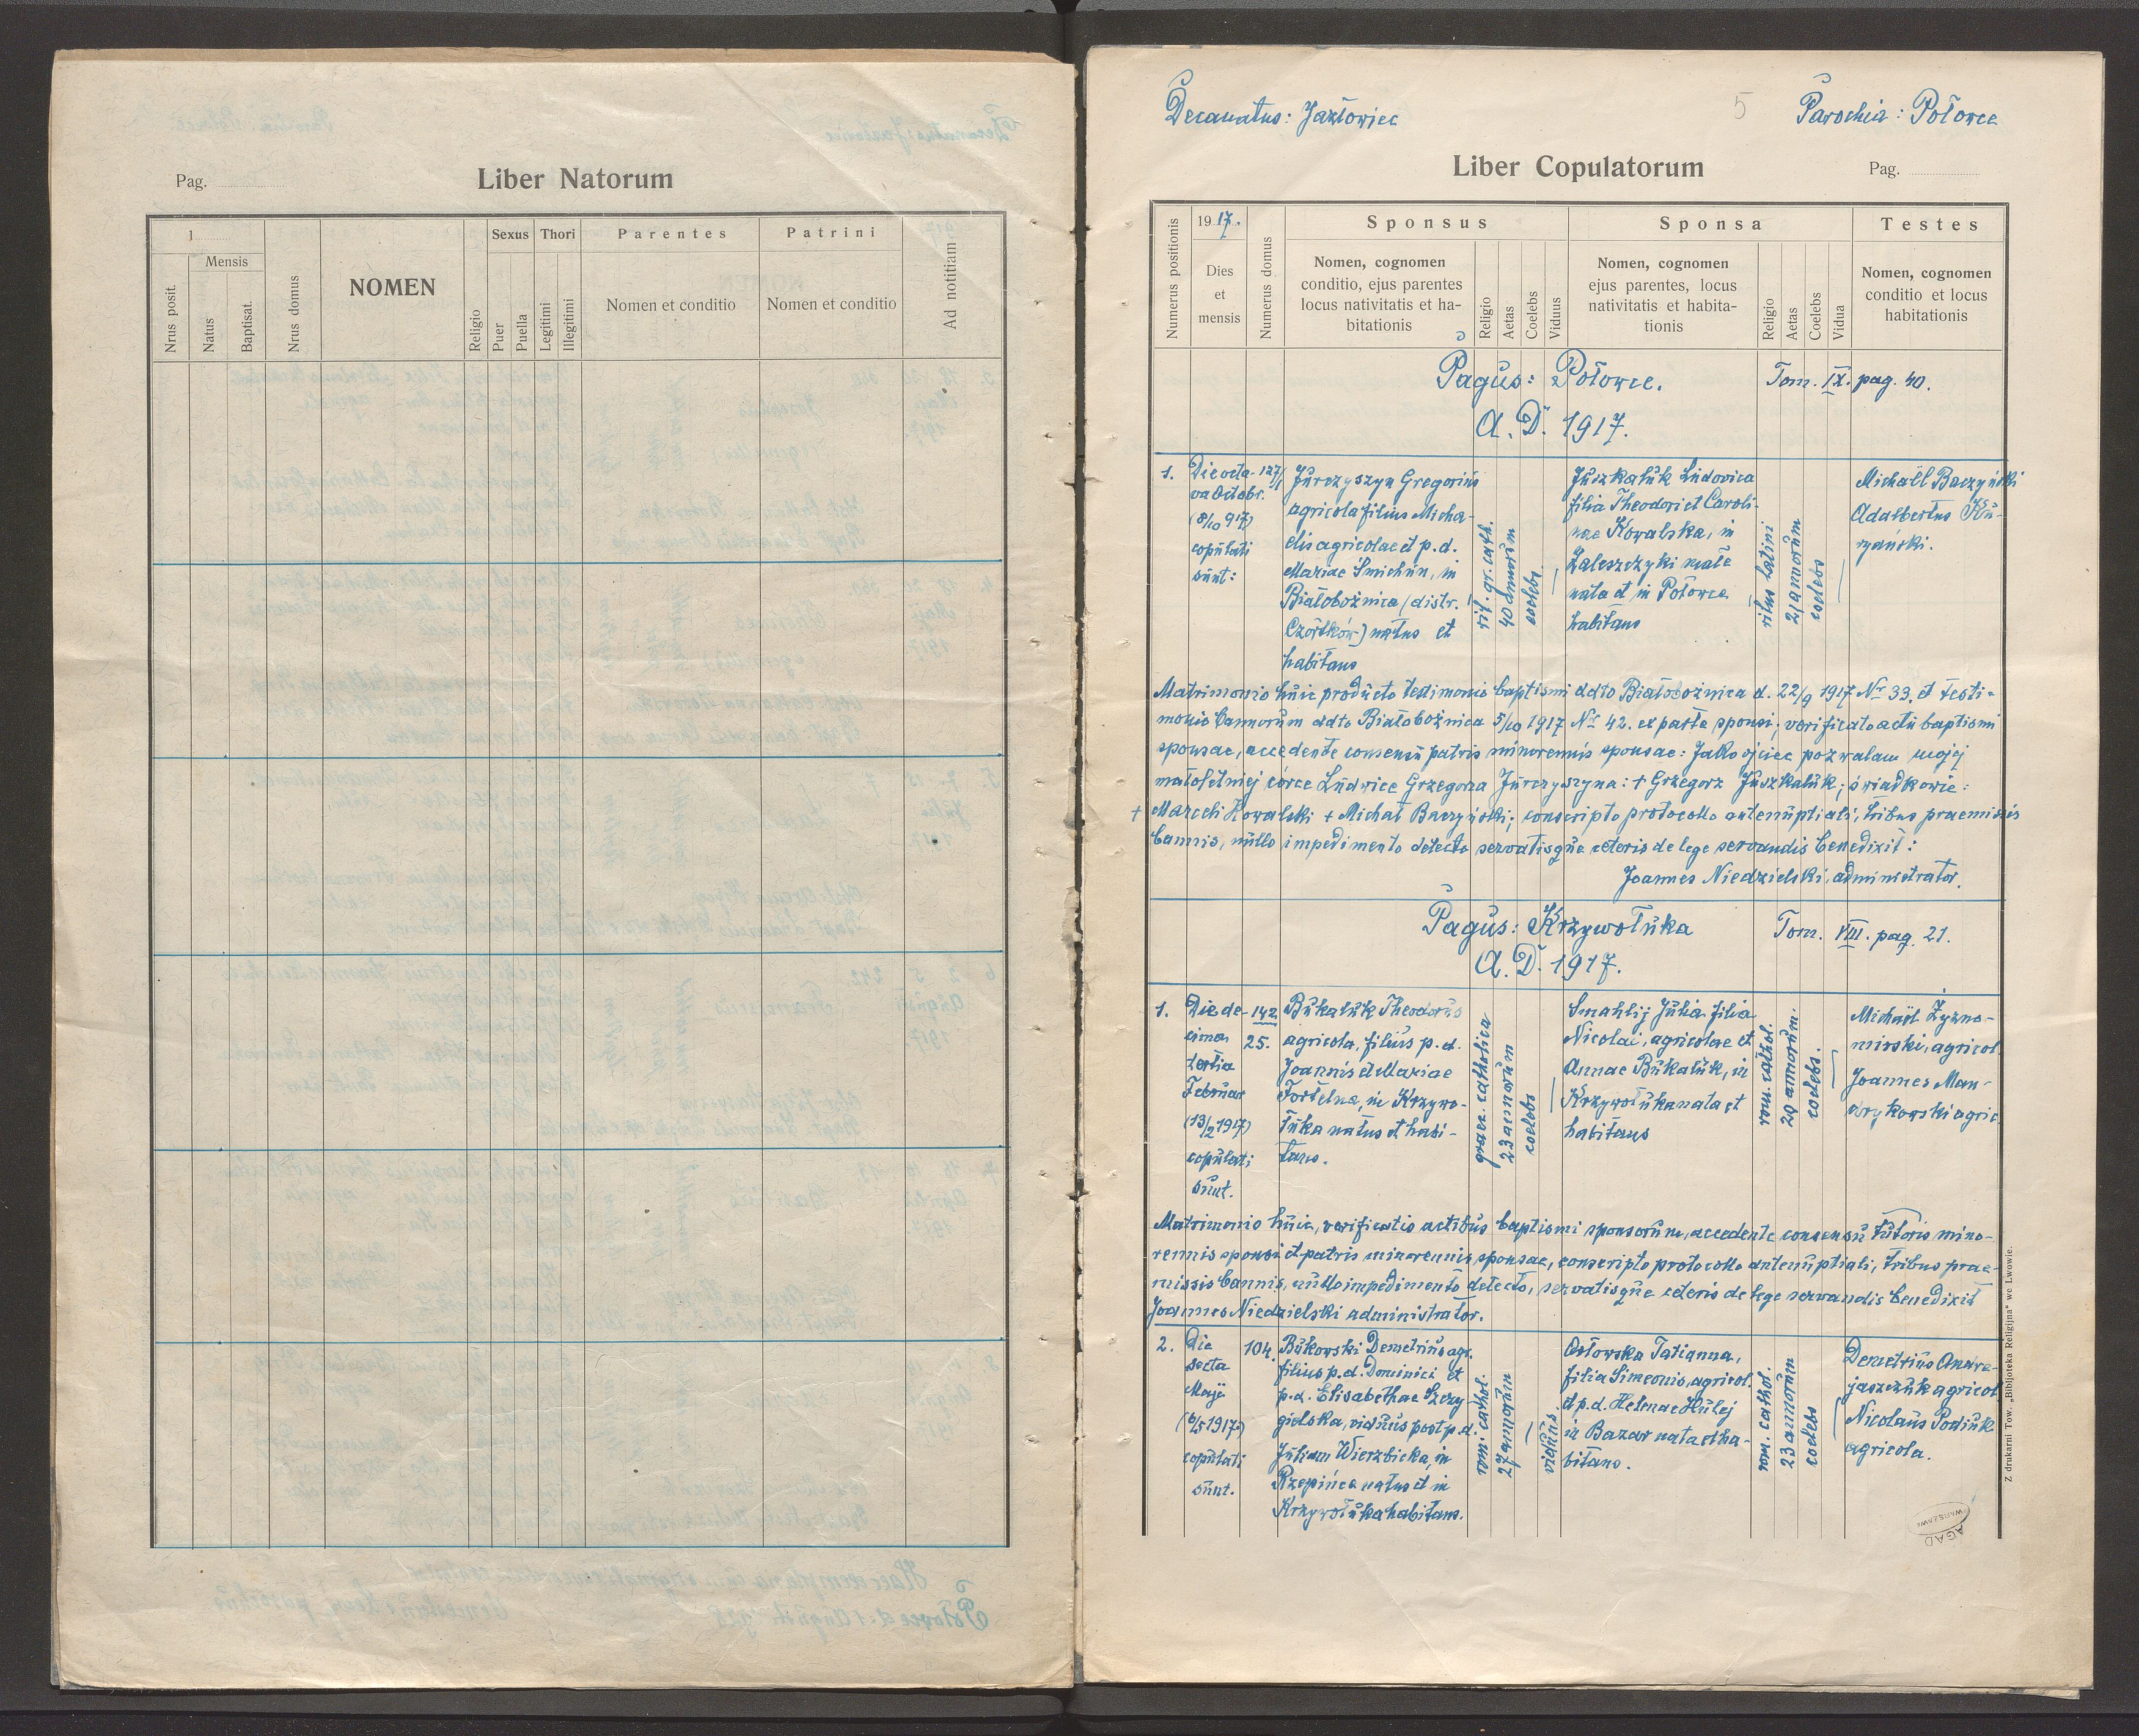 Pag.
Liber Natorum
1
Mensis
Nrus posit.
Natus
Baptisat.
Nrus domus
NOMEN
Religio
Sexus
Puer
Puella
Thori
Legitimi
Illegitimi
Parentes
Nomen et conditio
Patrini
Nomen et conditio
Ad notitiam
Decanatus: Jazłowiec
5
Parochia: Połowce
Liber Copulatorum
Pag.
Numerus positionis
1917.
Dies
et
mensis
Numerus domus
Sponsus
Nomen, cognomen
conditio, ejus parentes
locus nativitatis et ha-
bitationis
Religio
Aetas
Coelebs
Viduus
Sponsa
Nomen, cognomen
ejus parentes, locus
nativitatis et habita-
tionis
Religio
Aetas
Coelebs
Vidua
Testes
Nomen, cognomen
conditio et locus
habitationis
Pagus: Połowce. Tom. IX. pag. 40.
A. D. 1917.
1.
Die octa-
va Octobr.
(8/10 917)
copulati
sunt:
127/1
Jurczyszyn Gregorius
agricola filius Micha-
elis agricolae et p. d.
Mariae Smichun, in
Białobożnica (distr.
Czortków) natus et
habitans
rit. gr. cath.
40 annorum
coelebs
Juszkaluk Ludovica
filia Theodori et Caroli-
nae Kowalska, in
Zaleszczyki małe
nata et in Połowce
habitans
ritus latini
21 annorum
coelebs
Michaël Baczyński
Adalbertus Ku-
ryański.
Matrimonio huic producto testimonio baptismi ddto Białobożnica d. 22/9 1917 Nr 33. et testi-
monio bannorum ddto Białobożnica 5/10 1917 Nr 42. ex parte sponsi, verificato actu baptismi
sponsae, accedente consensu patris minorennis sponsae: Jako ojciec pozwalam mojej
małoletniej córce Ludwice Grzegorza Jurczyszyna: + Grzegorz Juszkaluk; świadkowie:
+ Marceli Kowalski + Michał Baczyński; conscripto protocollo antenuptiali, tribus praemissis
bannis, nullo impedimento detecto servatisque ceteris de lege servandis benedixit:
Joannes Niedzielski, administrator.
Pagus: Krzywołuka Tom. VIII. pag. 21.
A. D. 1917.
1.
Die de-
cima
tertia
Februar
(13/2 1917)
copulati
sunt.
142
25.
Bukaluk Theodorus
agricola, filius p. d.
Joannis et Mariae
Fortelna, in Krzywo-
łuka natus et habi-
tans.
graec. catholica
23 annorum
coelebs
Smahlij Julia filia
Nicolai, agricolae et
Annae Bukaluk, in
Krzywołuka nata et
habitans
rom. cathol.
20 annorum.
coelebs.
Michaël Żyzno-
mirski, agricol.
Joannes Man-
drykowski agric.
Matrimonio huic, verificatis actibus baptismi sponsorum, accedente consensu tutoris mino-
rennis sponsi et patris minorennis sponsae, conscripto protocollo antenuptiali, tribus prae-
missis bannis, nullo impedimento detecto, servatisque ceteris de lege servandis benedixit
Joannes Niedzielski administrator.
2.
Die
sexta
Maji
(6/5 1917)
copulati
sunt.
104.
Bukowski Demetrius agr.
filius p. d. Dominici et
p. d. Elisabethae Szczy
gielska, viduus post p. d.
Juliam Wierzbicka, in
Rzepińce natus et in
Krzywołuka habitans.
rom. cathol.
27 annorum
viduus.
Osłowska Tatianna,
filia Simeonis, agricol.
et p. d. Helenae Hulej
in Bazar nata et ha-
bitans.
rom. cathol.
23 annorum
coelebs
Demetrius Andre-
jaszczuk agricol
Nicolaus Podiuk
agricola.
Z drukarni Tow. „Bibljoteka Religijna" we Lwowie.
AGAD
WARSZAWA